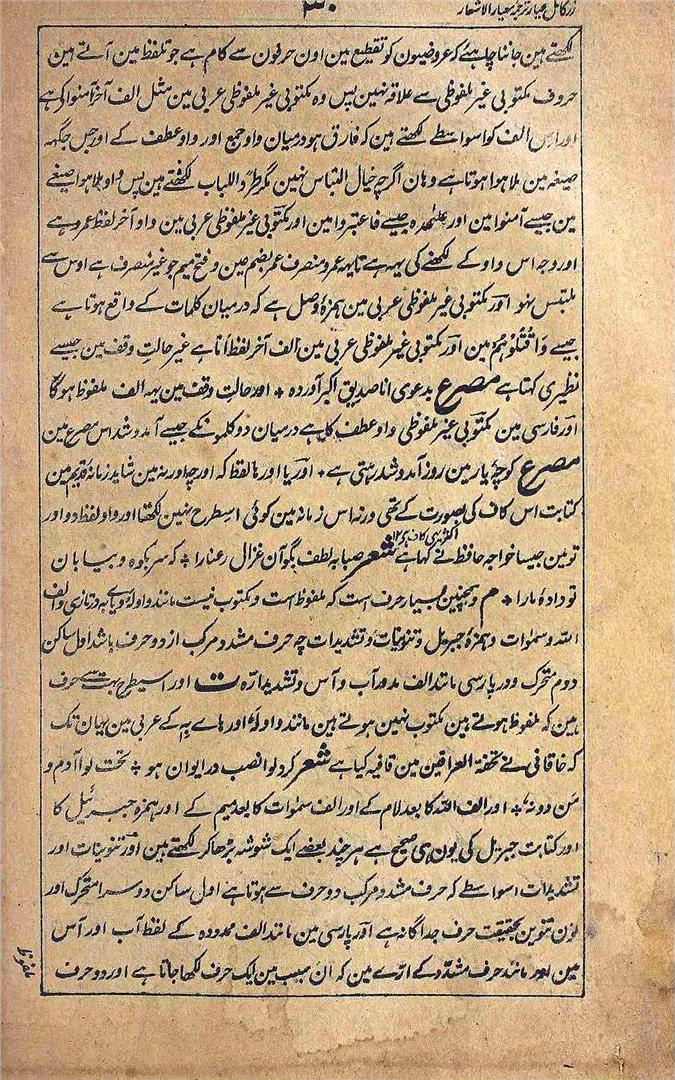 زر کامل عیار ترجمہ معیار الاشعار
۳۰
لکھتے ہین جاننا چاہئے کہ عروضیون کو تقطیع مین اون حرفون سے کام ہے جو تلفظ مین آتے ہین
حروف مکتوبی غیر ملفوظی سے علاقہ نہین پس وہ مکتوبی غیر ملفوظی عربی مین مثل الف آخر آمنوا کے ہے
اور اس الف کو اسواسطے لکھتے ہین کہ فارق ہو درمیان واو جمع اور واو عطف کے اور جس جگہہ
صیغہ مین ملا ہوا ہوتا ہے وہان اگرچہ خیال التباس نہین مگر طرداللباب لکھتے ہین پس واو ملا ہوا صیغے
مین جیسے آمنوا مین اور علٰحدہ جیسے فاعتبروا مین اور مکتوبی غیر ملفوظی عربی مین واو آخر لفظ عمرو ہے
اور وجہ اس واو کے لکھنے کی یہہ ہے تا یہہ عمرو منصرف عمر بضم عین و فتح میم جو غیر منصرف ہے اوس سے
ملتبس نہو اور مکتوبی غیر ملفوظی عربی مین ہمزۂ وصل ہے کہ درمیان کلمات کے واقع ہوتا ہے
جیسے وَاقْتُلُوْهُمْ مین اور مکتوبی غیر ملفوظی عربی مین الف آخر لفظ انا ہے غیر حالتِ وقف مین جیسے
نظیری کہتا ہے مصرع بدعوی انا صدیق اکبر آوردہ ٭ اور حالتِ وقف مین یہہ الف ملفوظ ہوگا
اور فارسی مین مکتوبی غیر ملفوظی واو عطف کا ہے درمیان دو کلمونکے جیسے آمد و شد اس مصرع مین
مصرع کوچۂ یار مین روز آمد و شد رہتی ہے ٭ اور یا اور ہا لفظ کہ اور چہ اور نہ مین شاید زمانۂ قدیم مین
کتابت اس کاف کی بصورت کے تھی ورنہ اس زمانہ مین کوئی اسطرح نہین لکھتا اور واو لفظ دو اور
تو مین جیسا خواجہ حافظ نے کہا ہے شعر صبا بہ لطف بگو آن غزال رعنا را ٭ کہ سر بکوہ و بیابان
تو دادۂ مارا ٭ م و ہمچنین بسیار حرف است کہ ملفوظ است و مکتوب نیست مانند واو لہٗ و یاے بہٖ در تازی و الف
اللہ و سموات و ہمزۂ جبرئل و تنوینات و تشدیدات چہ حرف مشدد مرکب از دو حرف باشد اول ساکن
دوم متحرک و در پارسی مانند الف مدور آب و آس و تشدید ارّہ ت اور اسیطرح بہت سے حرف
ہین کہ ملفوظ ہوتے ہین مکتوب نہین ہوتے ہین مانند واو لہٗ اور ہاے بہٖ کے عربی مین یہان تک
کہ خاقانی نے تحفۃ العراقین مین قافیہ کیا ہے شعر کردلوا نصب در ایوان ہو ٭ تحت لوا آدم و
من دونہ ٭ اور الف اللہ کا بعد لام کے اور الف سموات کا بعد میم کے اور ہمزہ جبرئیل کا
اور کتابت جبرئل کی یون ہی صحیح ہے ہر چند بعضے ایک شوشہ بڑھا کر لکھتے ہین اور تنوینات اور
تشدیدات اسواسطے کہ حرف مشدد مرکب دو حرف سے ہوتا ہے اول ساکن دوسرا متحرک اور
نون تنوین بحقیقت حرف جداگانہ ہے اور پارسی مین مانند الف ممدودہ کے لفظ آب اور آس
مین اور مانند حرف مشدّد کے ارّے مین کہ ان سبب مین ایک حرف لکھا جاتا ہے اور دو حرف
ملفوظ